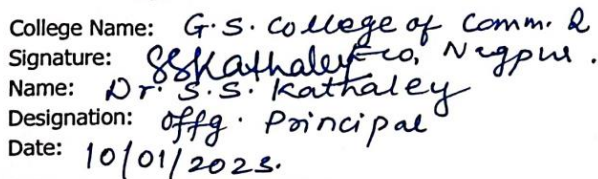 College Name: G.S. College of Comm. &
Signature: SSKathaley Eco, Nagpur.
Name: Dr. S.S. Kathaley
Designation: Offg. Principal
Date: 10/01/2023.